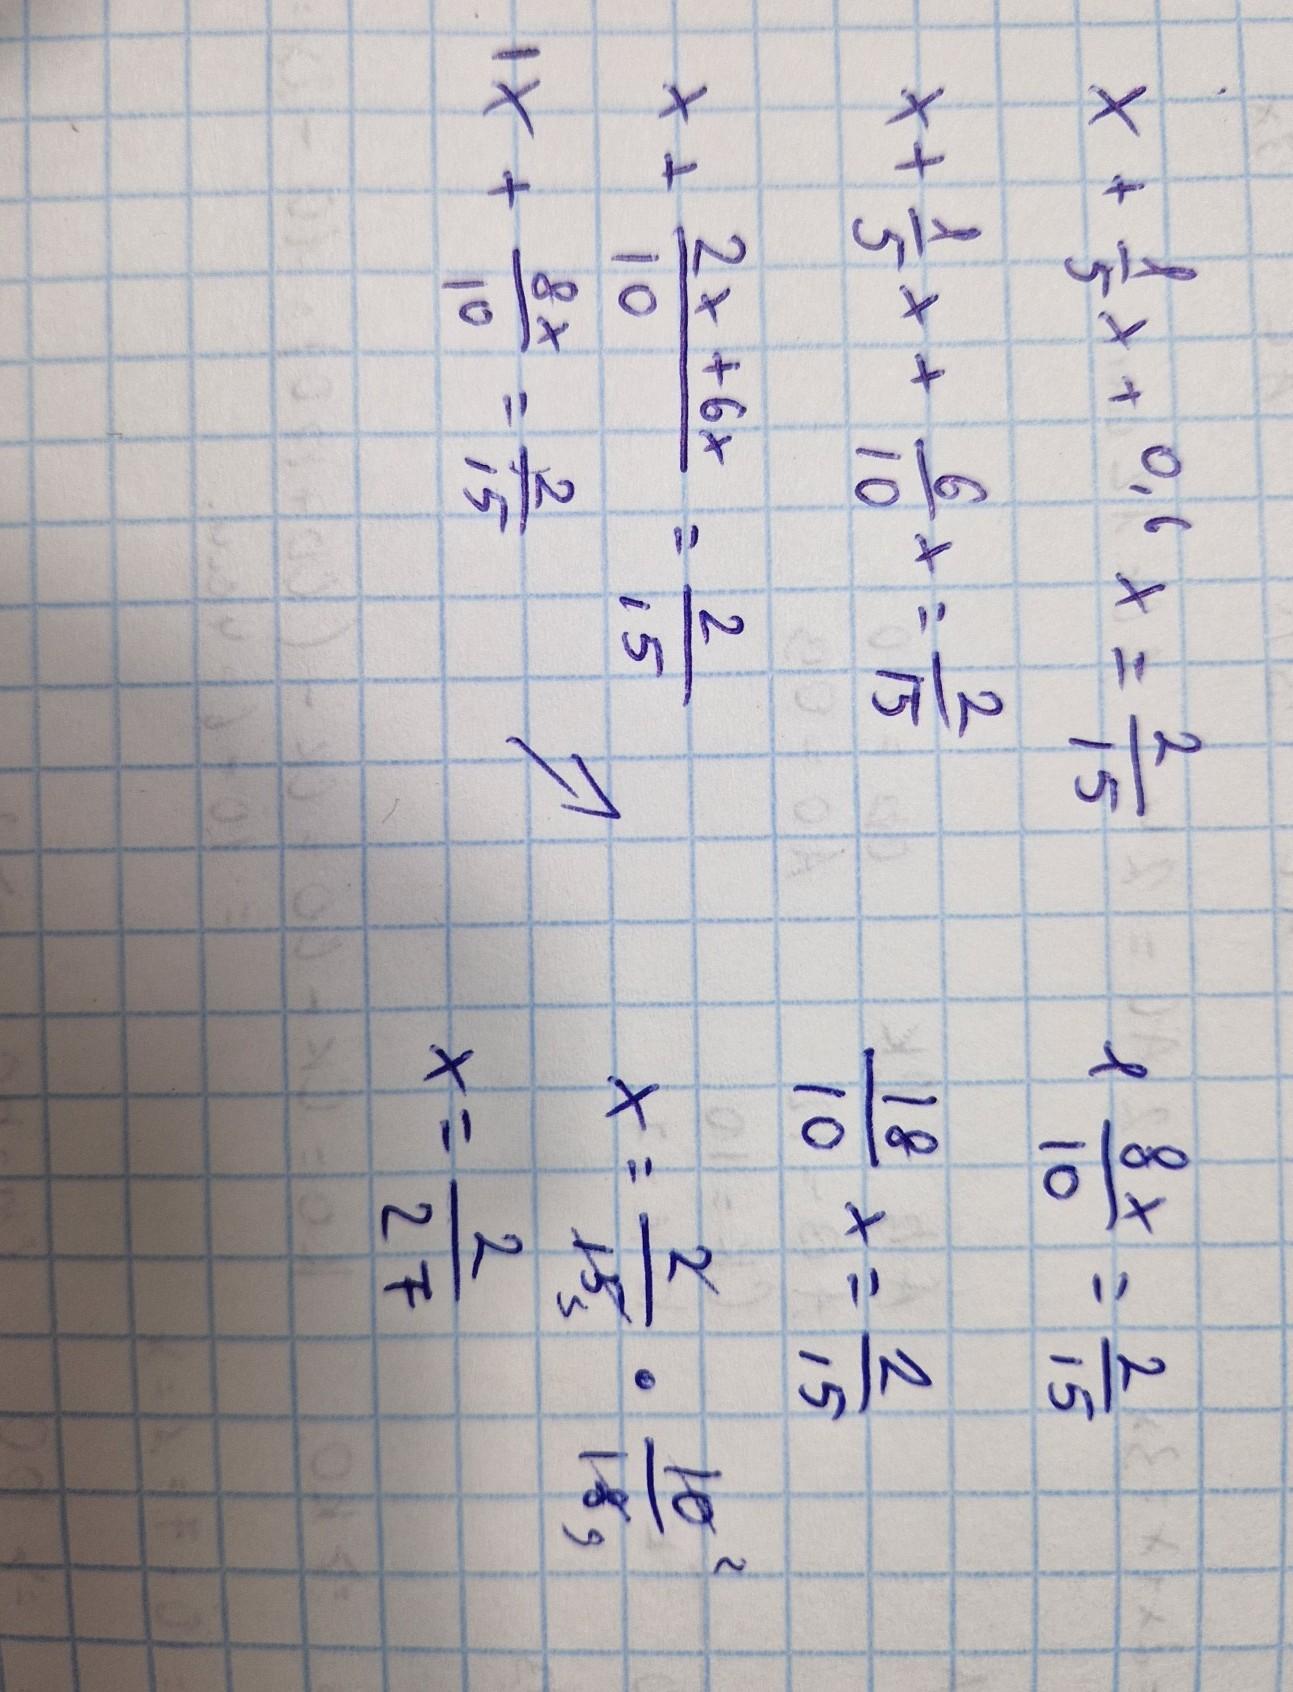 x + 1/5 x + 0,6 x = 2/15
x + 1/5 x + 6/10 x = 2/15
x + (2x + 6x)/10 = 2/15
1x + 8x/10 = 2/15
↗
1 8/10 x = 2/15
18/10 x = 2/15
x = 2/15 3 · 10 2/18 9
x = 2/27